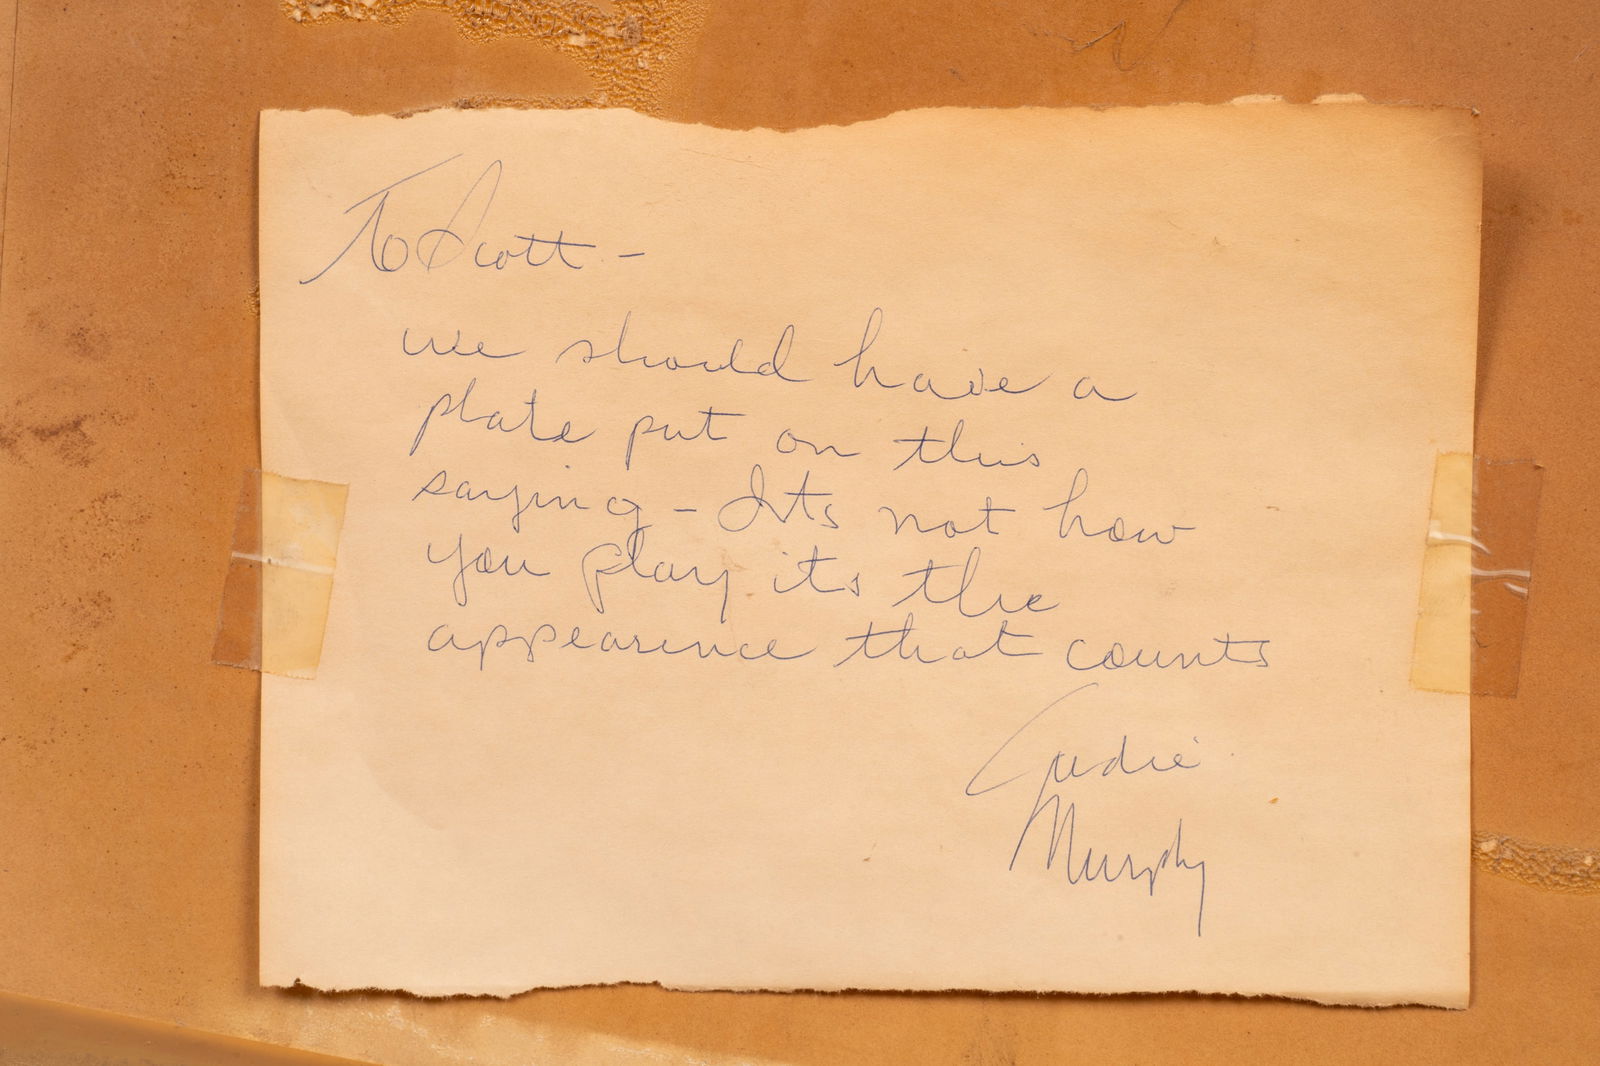 To Scott -
we should have a
plate put on this
saying - Its not how
you play its the
appearence that counts
Audie
Murphy